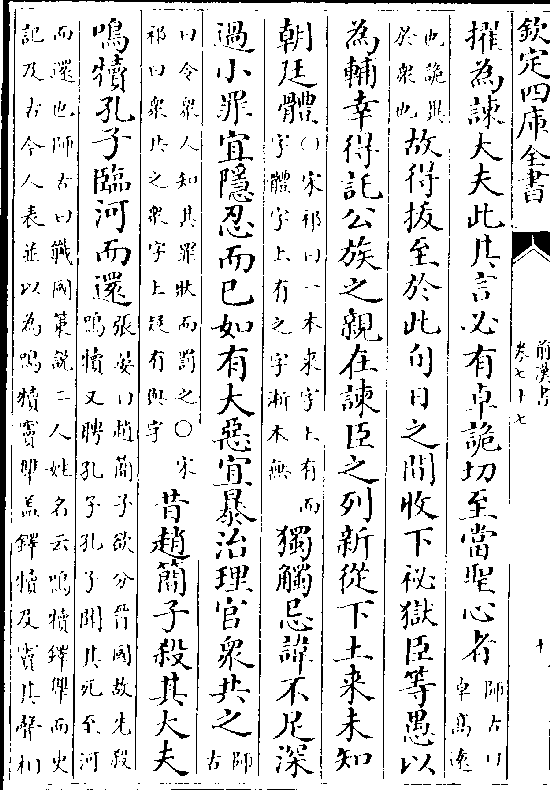 欽定四庫全書
前漢書
卷七十七
十
擢為諫大夫此其言必有卓詭切至當聖心者師古曰卓髙逺
也詭異於衆也故得拔至於此旬日之間收下祕獄臣等愚以
為輔幸得託公族之親在諫臣之列新從下土来未知
朝廷體〇宋祁曰一本来字上有而字體字上有之字浙本無獨觸忌諱不足深
過小罪宜隱忍而已如有大惡宜暴治理官衆共之師古
曰令衆人知其罪狀而罰之〇宋祁曰衆共之衆字上疑有與字昔趙簡子殺其大夫
鳴犢孔子臨河而還張晏曰趙簡子欲分晉國故先殺鳴犢又聘孔子孔子聞其死至河
而還也師古曰戰國策說二人姓名云鳴犢鐸犨而史記及古今人表並以為鳴犢竇犨盖鐸犢及竇其聲相